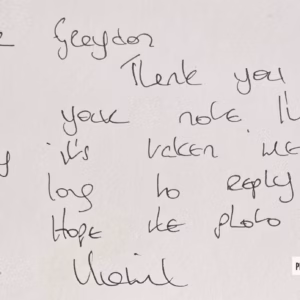 e Graydon
Thank you
your note I'
y it's taken me
long to reply
Hope the photo
P